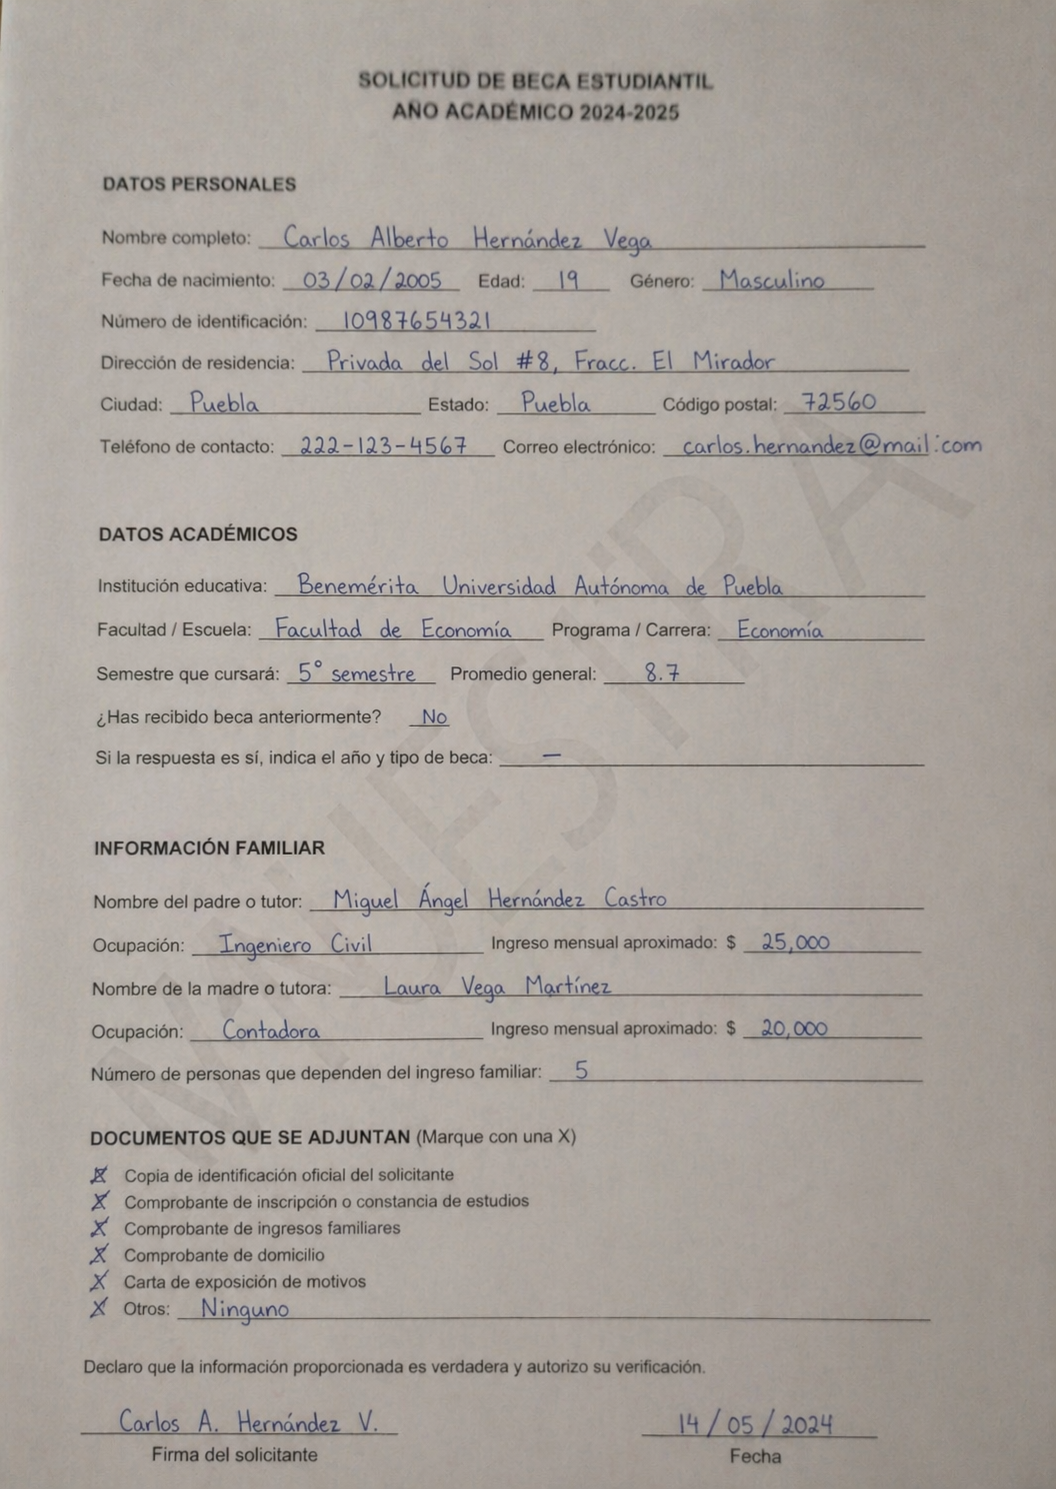 SOLICITUD DE BECA ESTUDIANTIL
AÑO ACADÉMICO 2024-2025
DATOS PERSONALES
Nombre completo: Carlos Alberto Hernández Vega
Fecha de nacimiento: 03/02/2005 Edad: 19 Género: Masculino
Número de identificación: 10987654321
Dirección de residencia: Privada del Sol #8, Fracc. El Mirador
Ciudad: Puebla Estado: Puebla Código postal: 72560
Teléfono de contacto: 222-123-4567 Correo electrónico: carlos.hernandez@mail.com
DATOS ACADÉMICOS
Institución educativa: Benemérita Universidad Autónoma de Puebla
Facultad / Escuela: Facultad de Economía Programa / Carrera: Economía
Semestre que cursará: 5° semestre Promedio general: 8.7
¿Has recibido beca anteriormente? No
Si la respuesta es sí, indica el año y tipo de beca: —
INFORMACIÓN FAMILIAR
Nombre del padre o tutor: Miguel Ángel Hernández Castro
Ocupación: Ingeniero Civil Ingreso mensual aproximado: $ 25,000
Nombre de la madre o tutora: Laura Vega Martínez
Ocupación: Contadora Ingreso mensual aproximado: $ 20,000
Número de personas que dependen del ingreso familiar: 5
DOCUMENTOS QUE SE ADJUNTAN (Marque con una X)
X Copia de identificación oficial del solicitante
X Comprobante de inscripción o constancia de estudios
X Comprobante de ingresos familiares
X Comprobante de domicilio
X Carta de exposición de motivos
X Otros: Ninguno
Declaro que la información proporcionada es verdadera y autorizo su verificación.
Carlos A. Hernández V. 14/05/2024
Firma del solicitante Fecha
MUESTRA